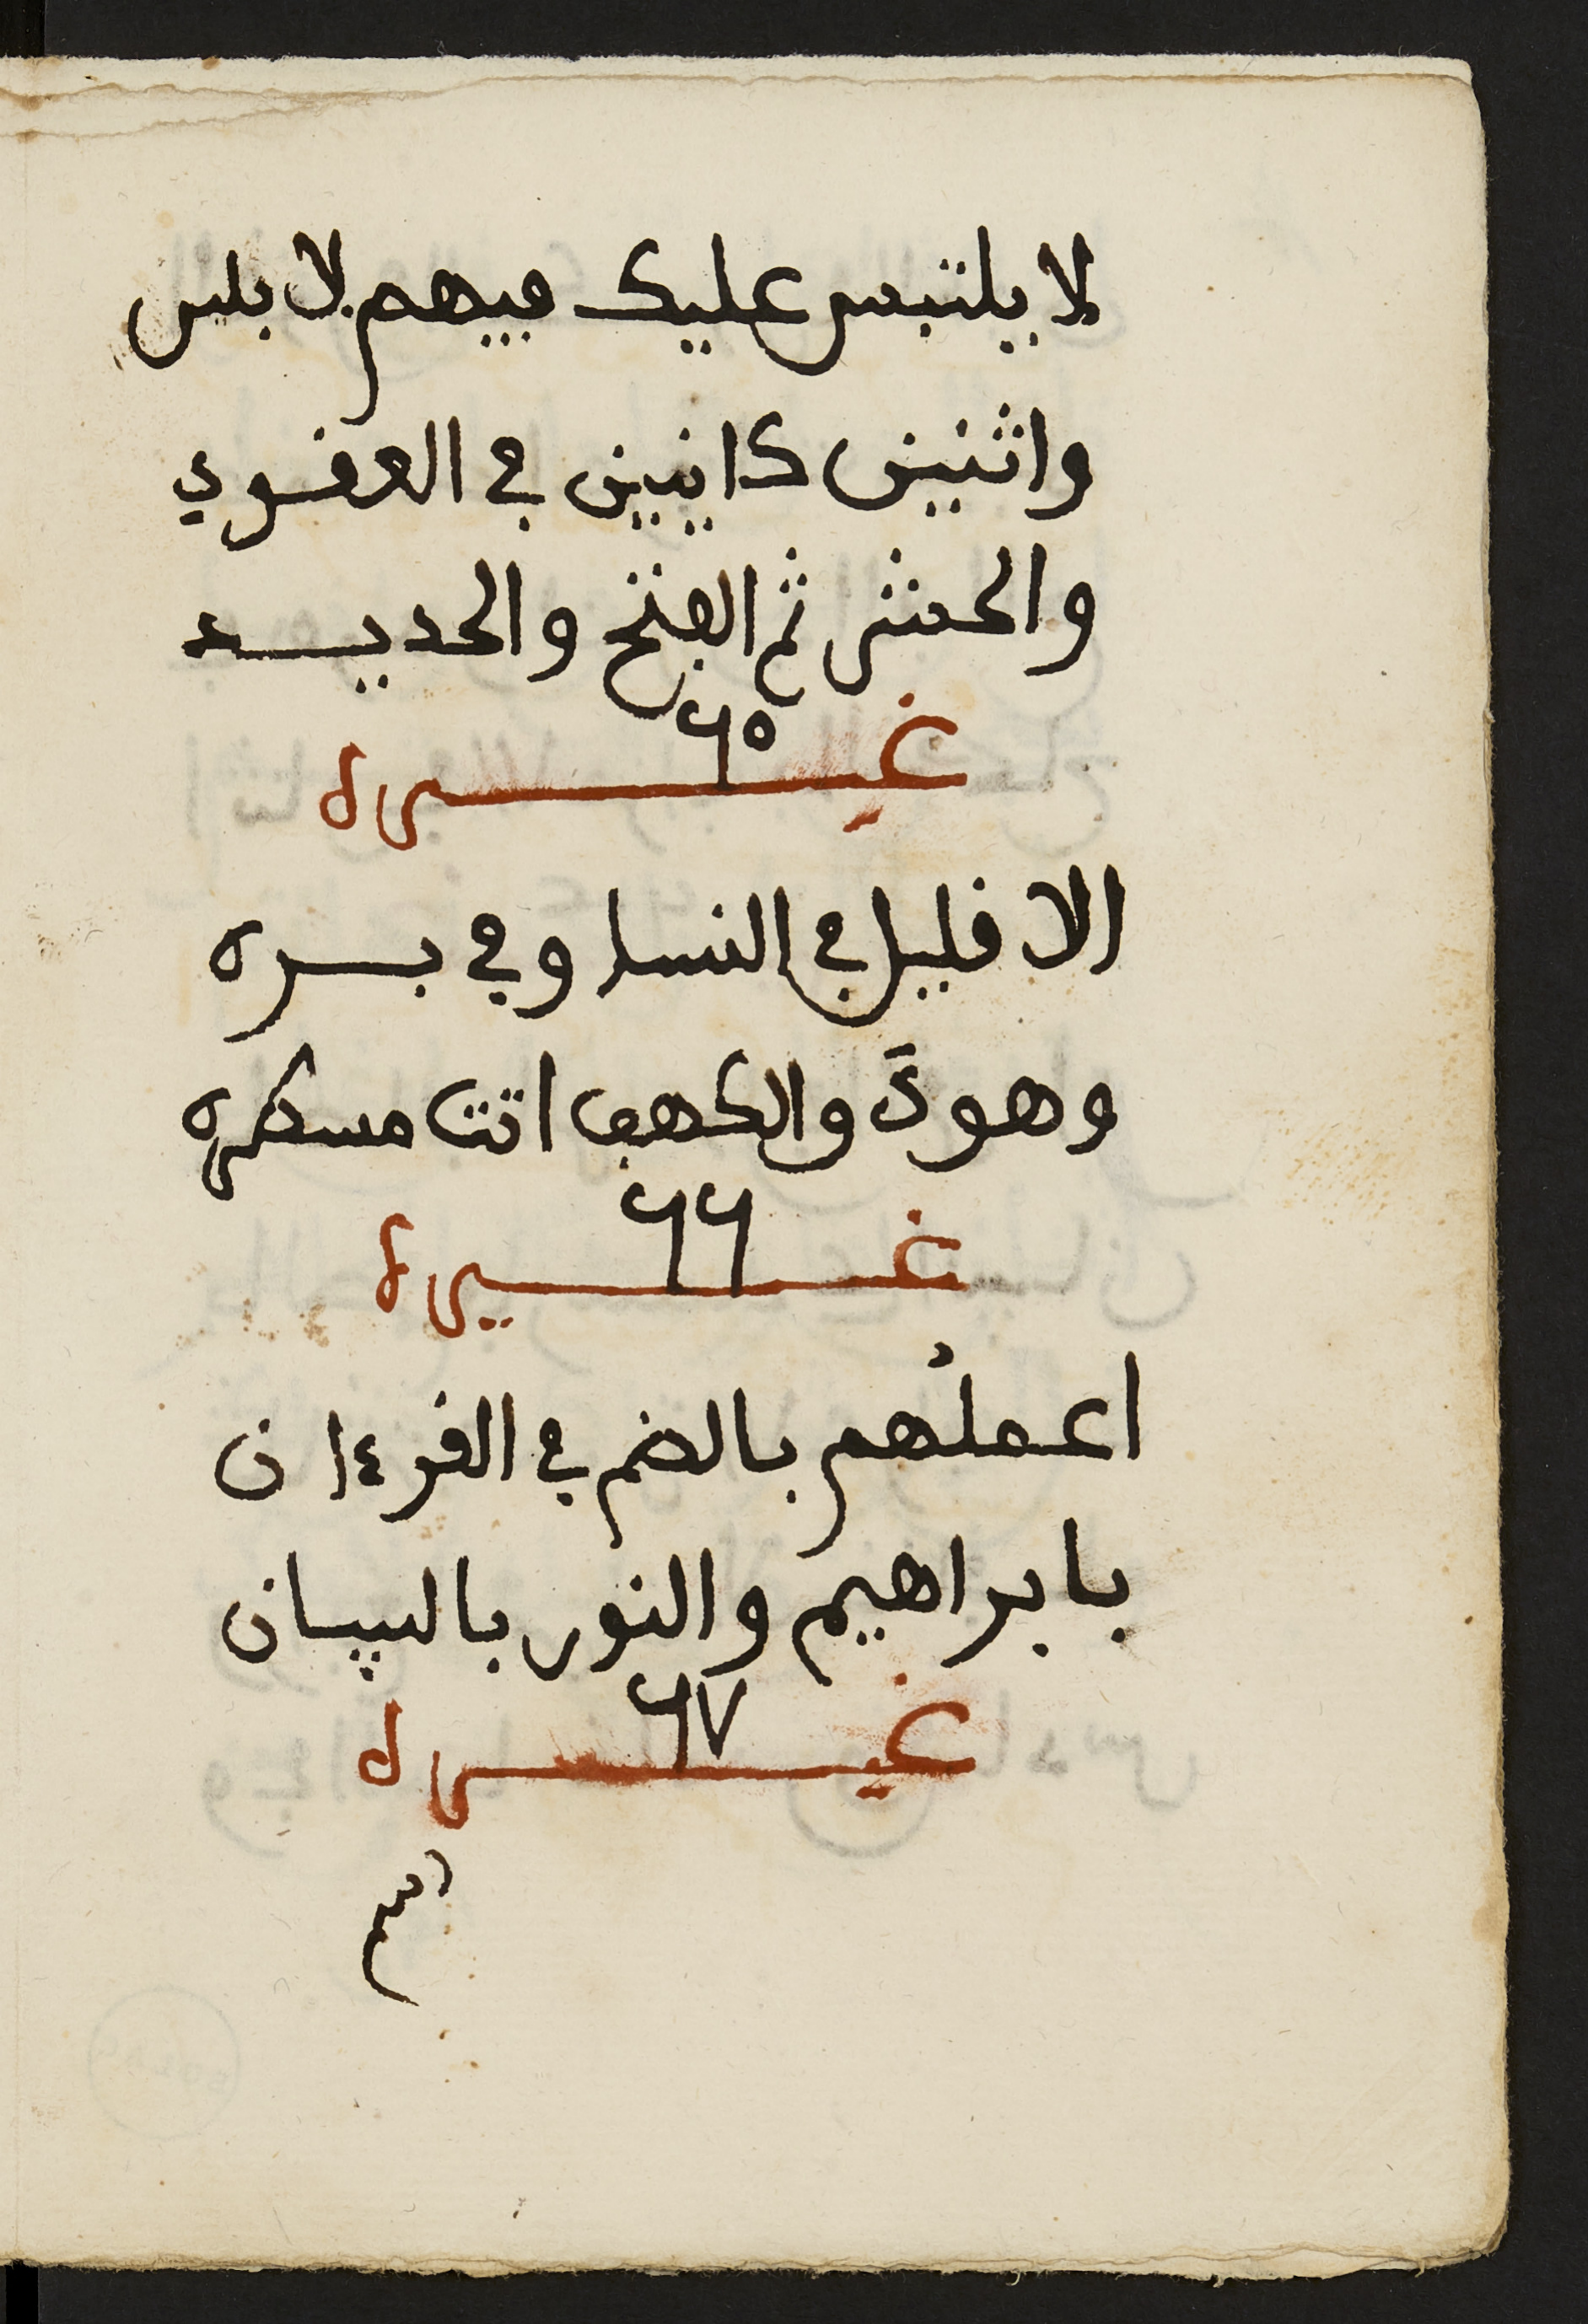 لا يلتبس عليك فيهم لا بلس
واثنين كاينين في العفوي
والحشر ثم الفتح والحديد
٦٥
غيره
الا قليل في النسا وفي بسره
وهود والكهف اتت مسطره
٦٦
غيره
اعملهم بالضم في القرءان
بابراهيم والنور بالبيان
٦٧
غيره